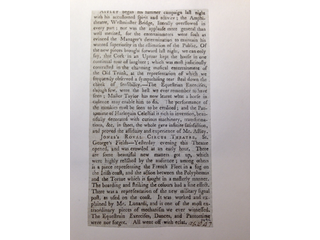 ASTLEY began his summer campaign last night
with his accustomed spirit and success; the Amphi-
theatre, Westminster Bridge, literally overflowed in
every part; nor was the applause more general than
well merited, for the entertainments were such as
evinced the Manager's determination to maintain his
wonted superiority in the estimation of the Public. Of
the new pieces brought forward last night, we can only
say, that Cork in an Uproar kept the house in one
continual roar of laughter; which was most judiciously
contrasted in the charming musical entertainment of
the Old Trunk, at the representation of which we
frequently observed a sympathising tear steal down the
cheek of Sensibility.—The Equestrian Exercises,
though few, were the best we ever remember to have
seen; Master Taylor has now learnt what a horse in
violence may enable him to do. The performance of
the monkies must be seen to be credited; and the Pan-
tomime of Harlequin Celestial is rich in invention, beau-
tifully decorated with curious machinery, transforma-
tions, &c. in short, the whole gave infinite satisfaction,
and proved the assiduity and experience of Mr. Astley.
JONES'S ROYAL CIRCUS THEATRE, St.
George's Fields—Yesterday evening this Theatre
opened, and was crowded at an early hour. There
are some beautiful new matters got up, which
were highly relished by the audience; among which
is a piece representing the French Fleet in a fog on
the Irish coast, and the action between the Polyphemus
and the Tartar which is fought in a masterly manner.
The boarding and striking the colours had a fine effect.
There was a representation of the new military signal
post, as used on the coast. It was worked and ex-
plained by Mr. Lunardi, and is one of the most ex-
traordinary pieces of mechanism we ever witnessed.
The Equestrian Exercises, Dances, and Pantomime
were not forgot. All went off with eclat.